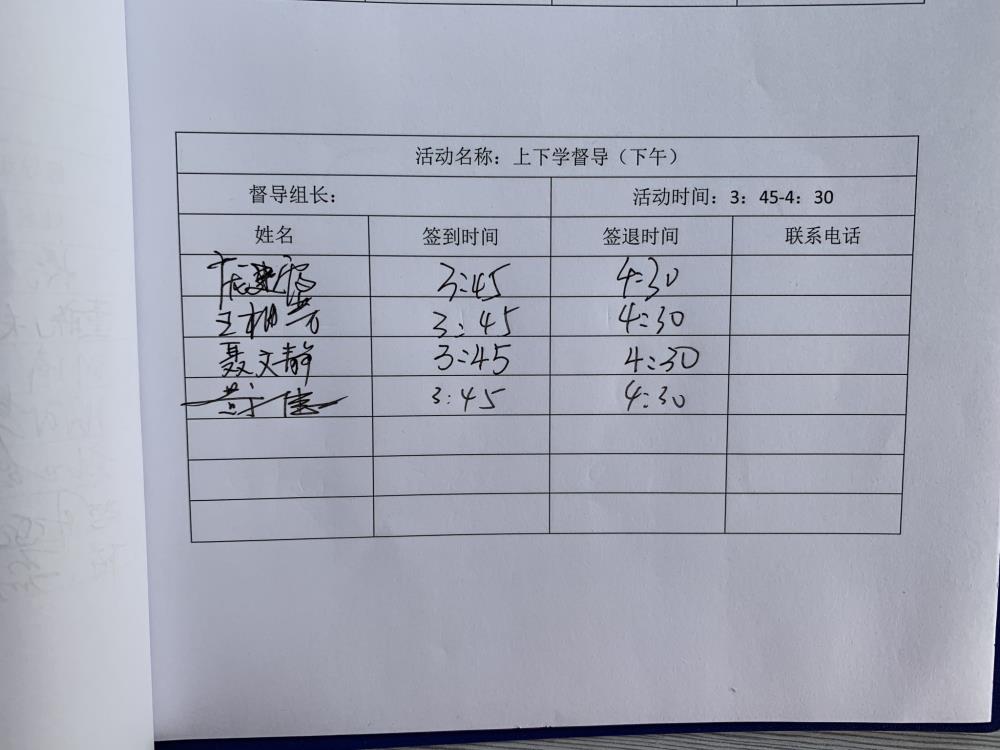 活动名称：上下学督导（下午）
督导组长： 活动时间：3：45-4：30
姓名 签到时间 签退时间 联系电话
3:45 4:30
王相芳 3:45 4:30
聂文静 3:45 4:30
3:45 4:30